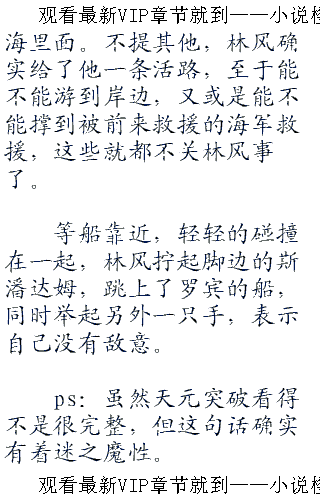 观看最新VIP章节就到——小说
海里面。不提其他，林风确
实给了他一条活路，至于能
不能游到岸边，又或是能不
能撑到被前来救援的海军救
援，这些就都不关林风事
了。
等船靠近，轻轻的碰撞
在一起，林风拧起脚边的斯
潘达姆，跳上了罗宾的船，
同时举起另外一只手，表示
自己没有敌意。
ps：虽然天元突破看得
不是很完整，但这句话确实
有着迷之魔性。
观看最新VIP章节就到——小说